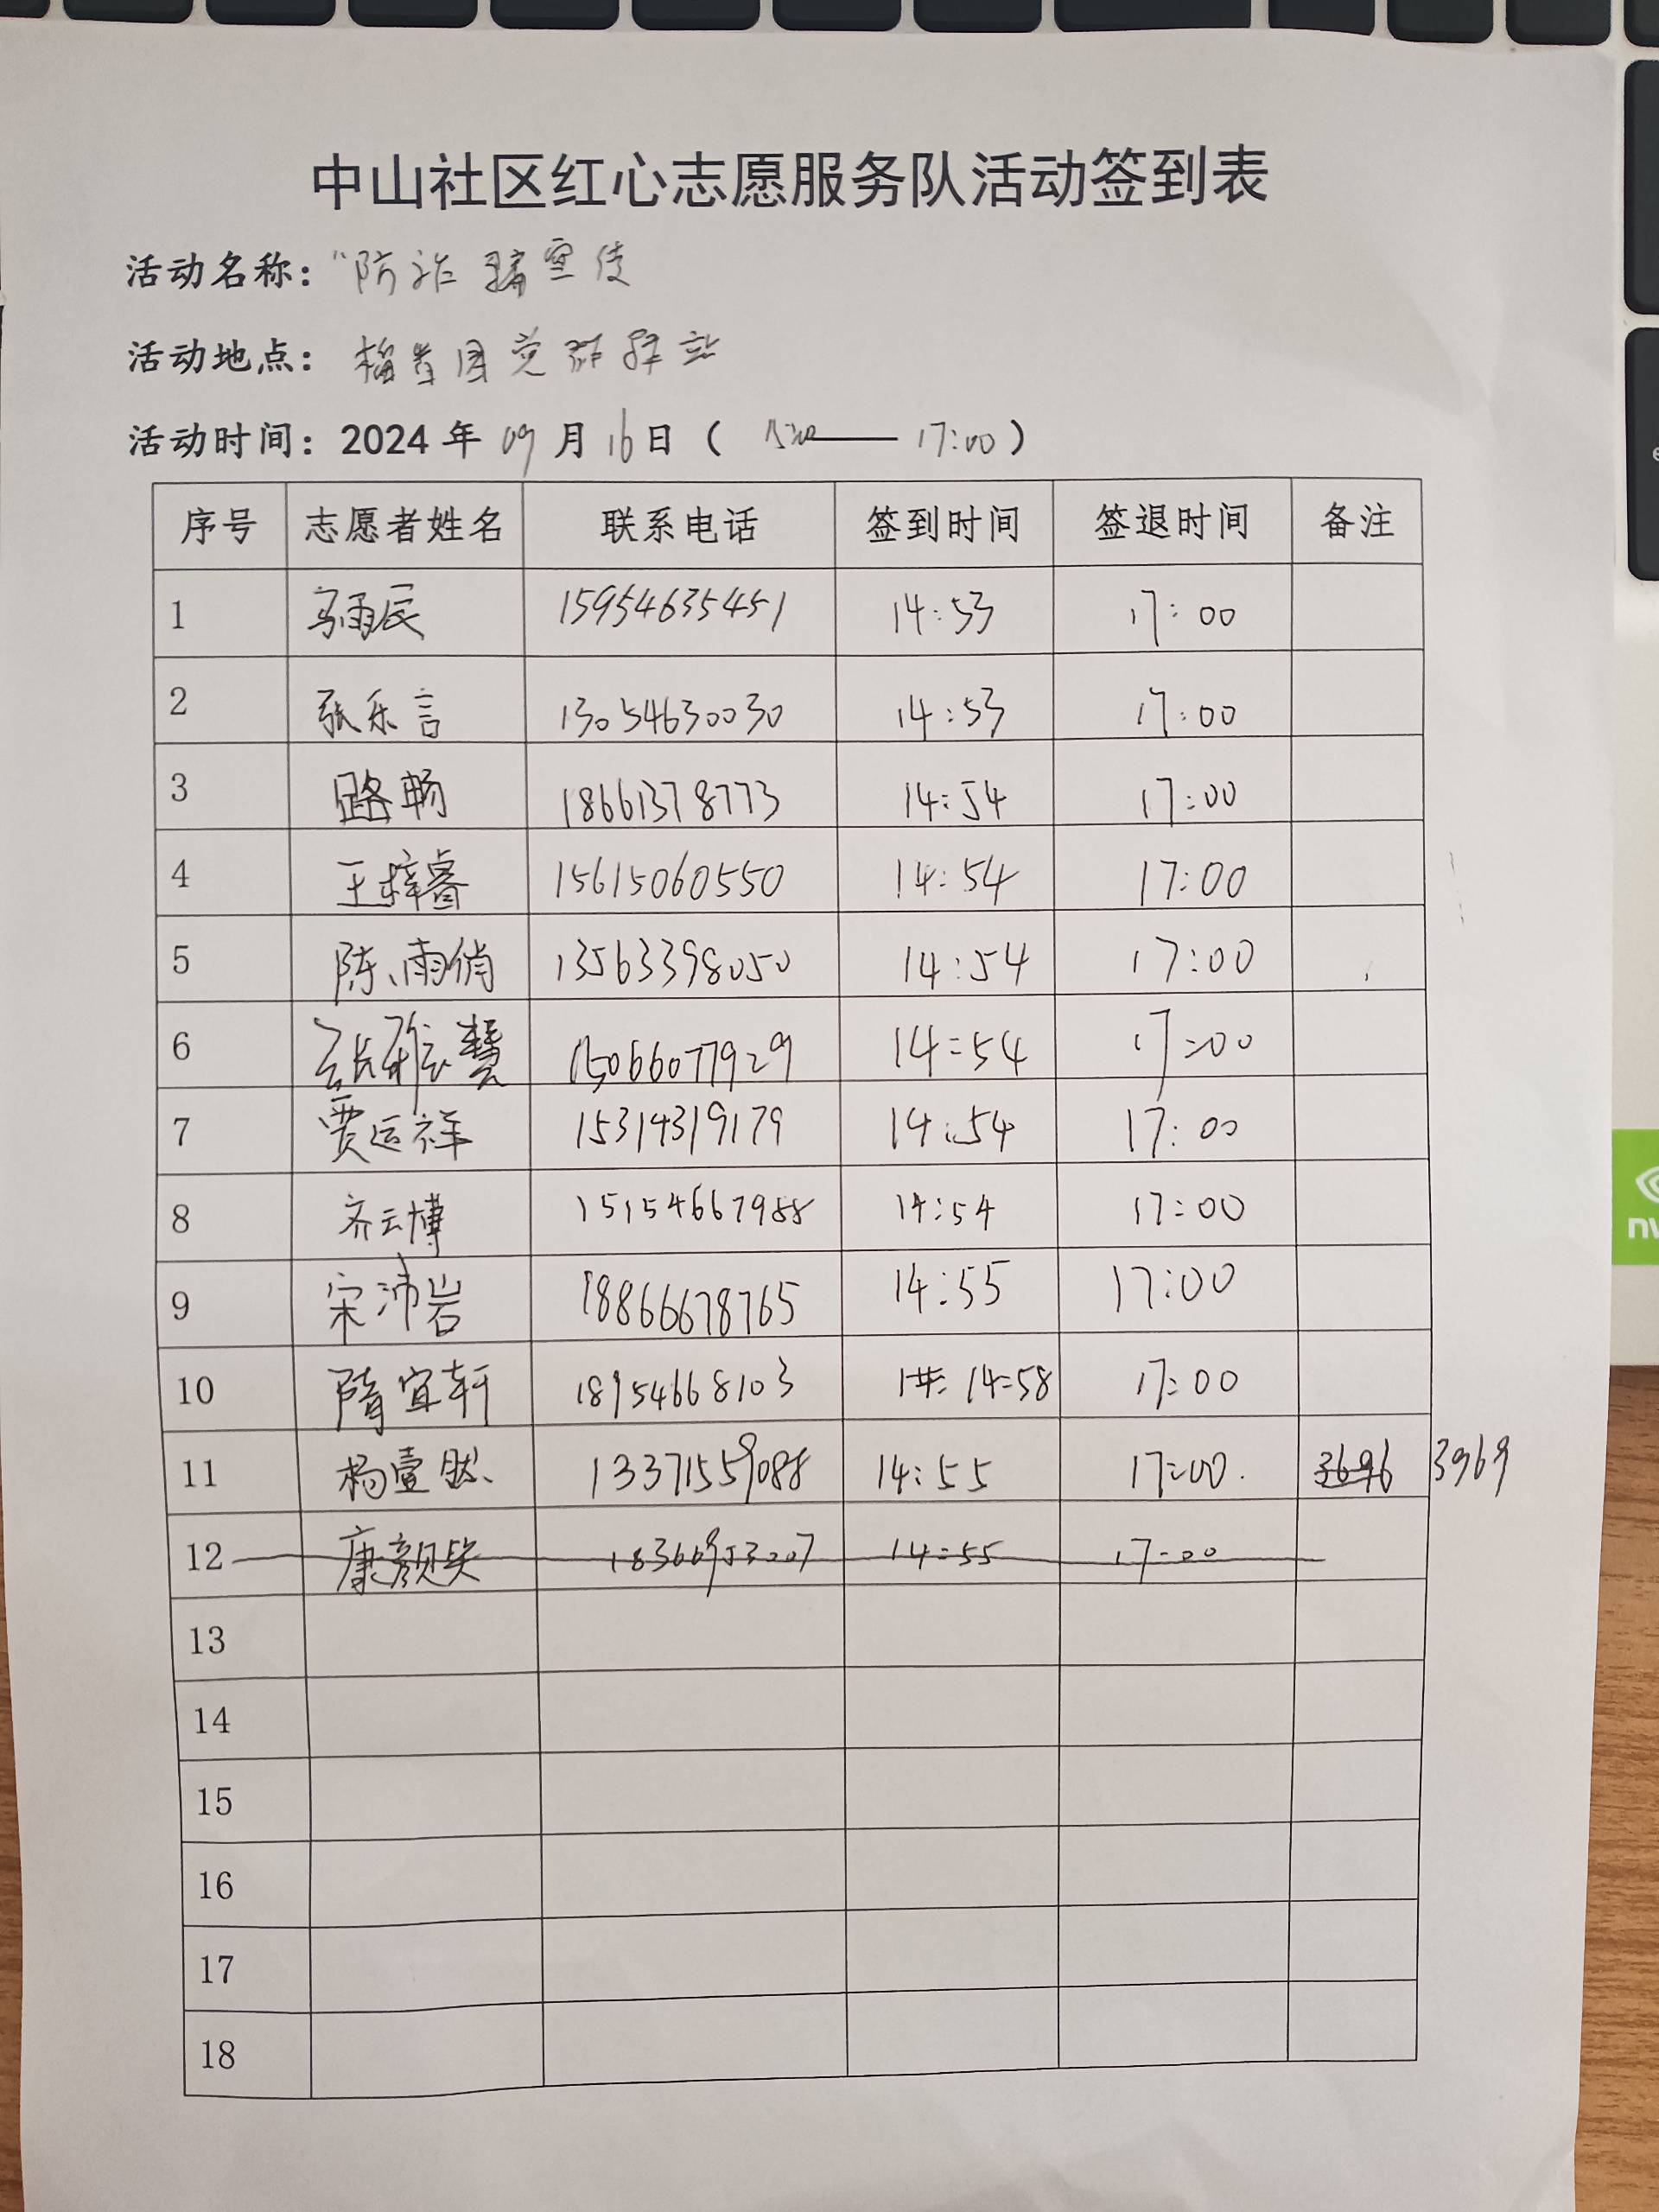 中山社区红心志愿服务队活动签到表
活动名称：“防诈骗宣传
活动地点：党群驿站
活动时间：2024 年 09 月 16 日（ 15:00—— 17:00 ）
序号 志愿者姓名 联系电话 签到时间 签退时间 备注
1 马雨辰 15954635451 14:53 17:00
2 张乐言 13054630030 14:53 17:00
3 路畅 18661378773 14:54 17:00
4 王梓睿 15615060550 14:54 17:00
5 陈雨俏 13563398050 14:54 17:00
6 张雅慧 15066077929 14:54 17:00
7 贾运祥 15314319179 14:54 17:00
8 齐云博 15154667988 14:54 17:00
9 宋沛岩 18866678765 14:55 17:00
10 隋宜轩 18954668103 14:58 17:00
11 杨壹然 13371559088 14:55 17:00 3696 3969
12 康颜笑 18366953007 14:55 17:00
13
14
15
16
17
18